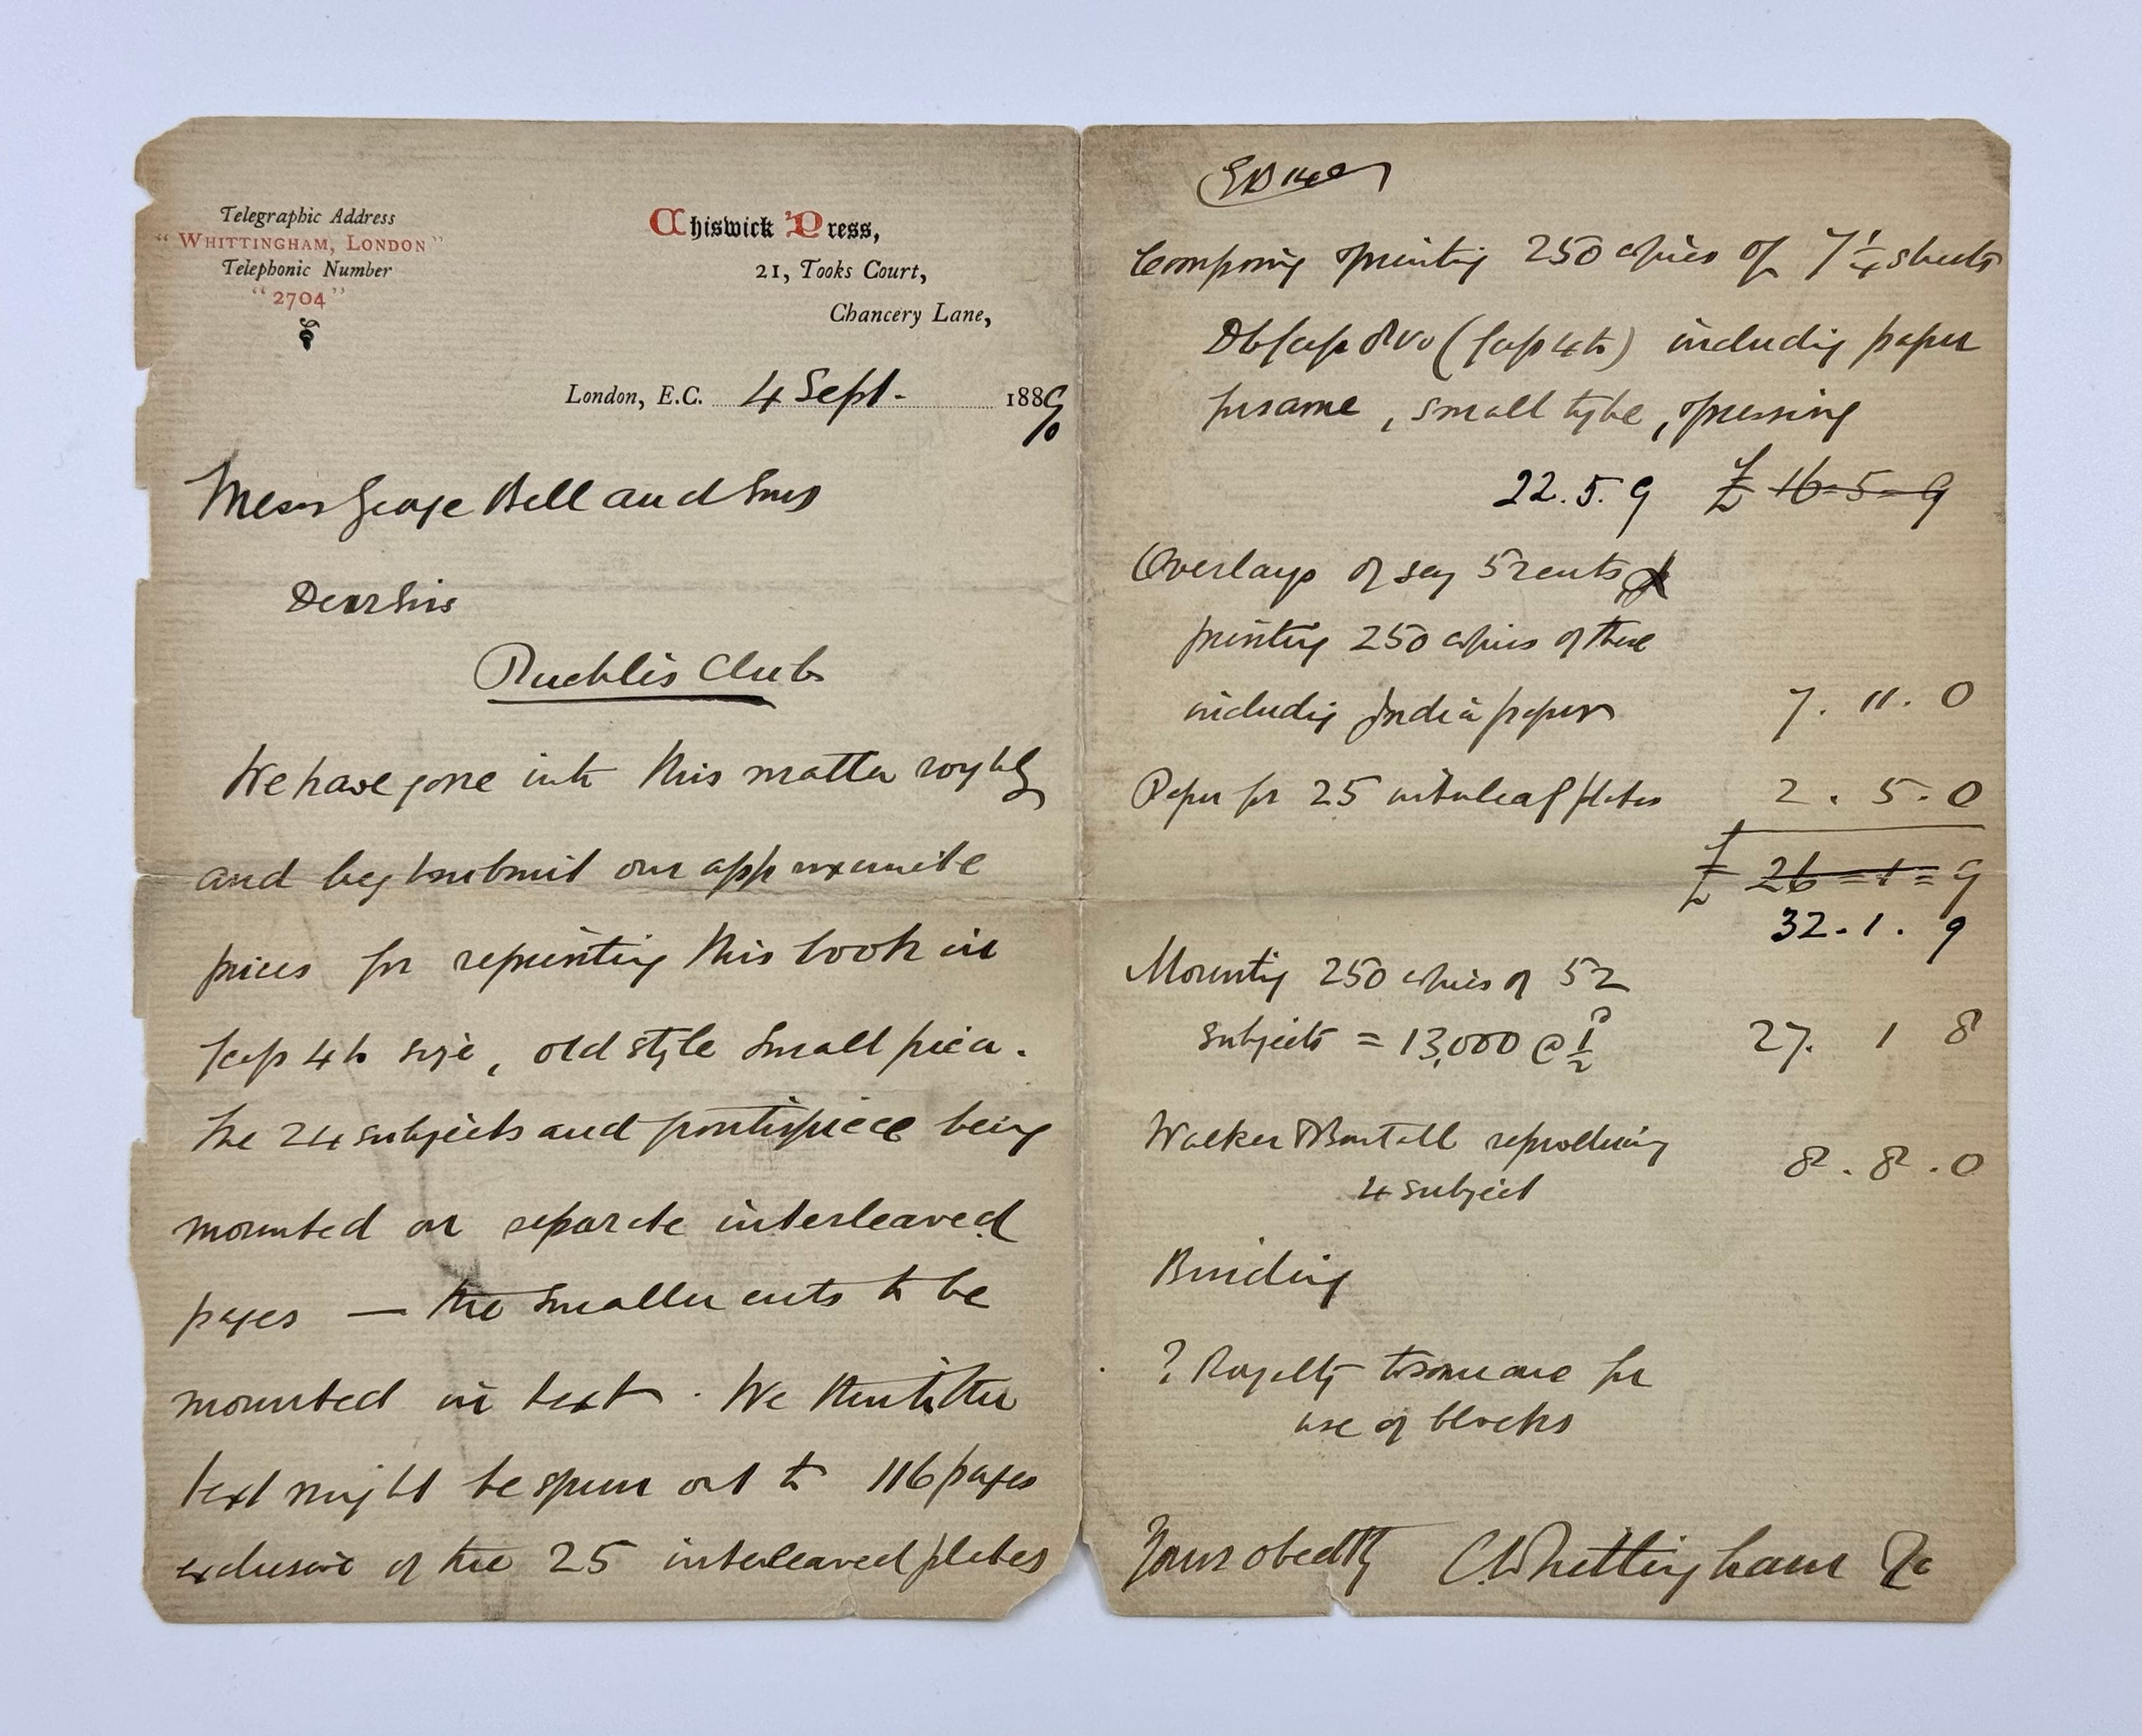 Telegraphic Address
"WHITTINGHAM, LONDON"
Telephonic Number
"2704"
Chiswick Press,
21, Tooks Court,
Chancery Lane,
London, E.C. 4 Sept. 1889
Messrs George Bell and Sons
Dear Sirs
Club
We have gone into this matter roughly
and beg to submit our approximate
prices for reprinting this book in
fcap 4to size, old style small pica.
The 24 subjects and frontispiece being
mounted on separate interleaved
pages — the smaller cuts to be
mounted in text. We think the
text might be spun out to 116 pages
exclusive of the 25 interleaved plates
Composing & printing 250 copies of 7¼ sheets
Dbl fcap 8vo (fcap 4to) including paper
for same, small type, & pressing
22.5.9 £ 16-5-9
Overlays of say 52 cuts &
printing 250 copies of these
including India paper 7. 11. 0
Paper for 25 interleaf plates 2. 5. 0
£ 26-1-9
32. 1. 9
Mounting 250 copies of 52
subjects = 13,000 @ ½ 27. 1 8
Walker & Boutall reproducing 8. 8. 0
4 subject
Binding
? Royalty to someone for
use of blocks
Yours obedtly C. Whittingham & Co